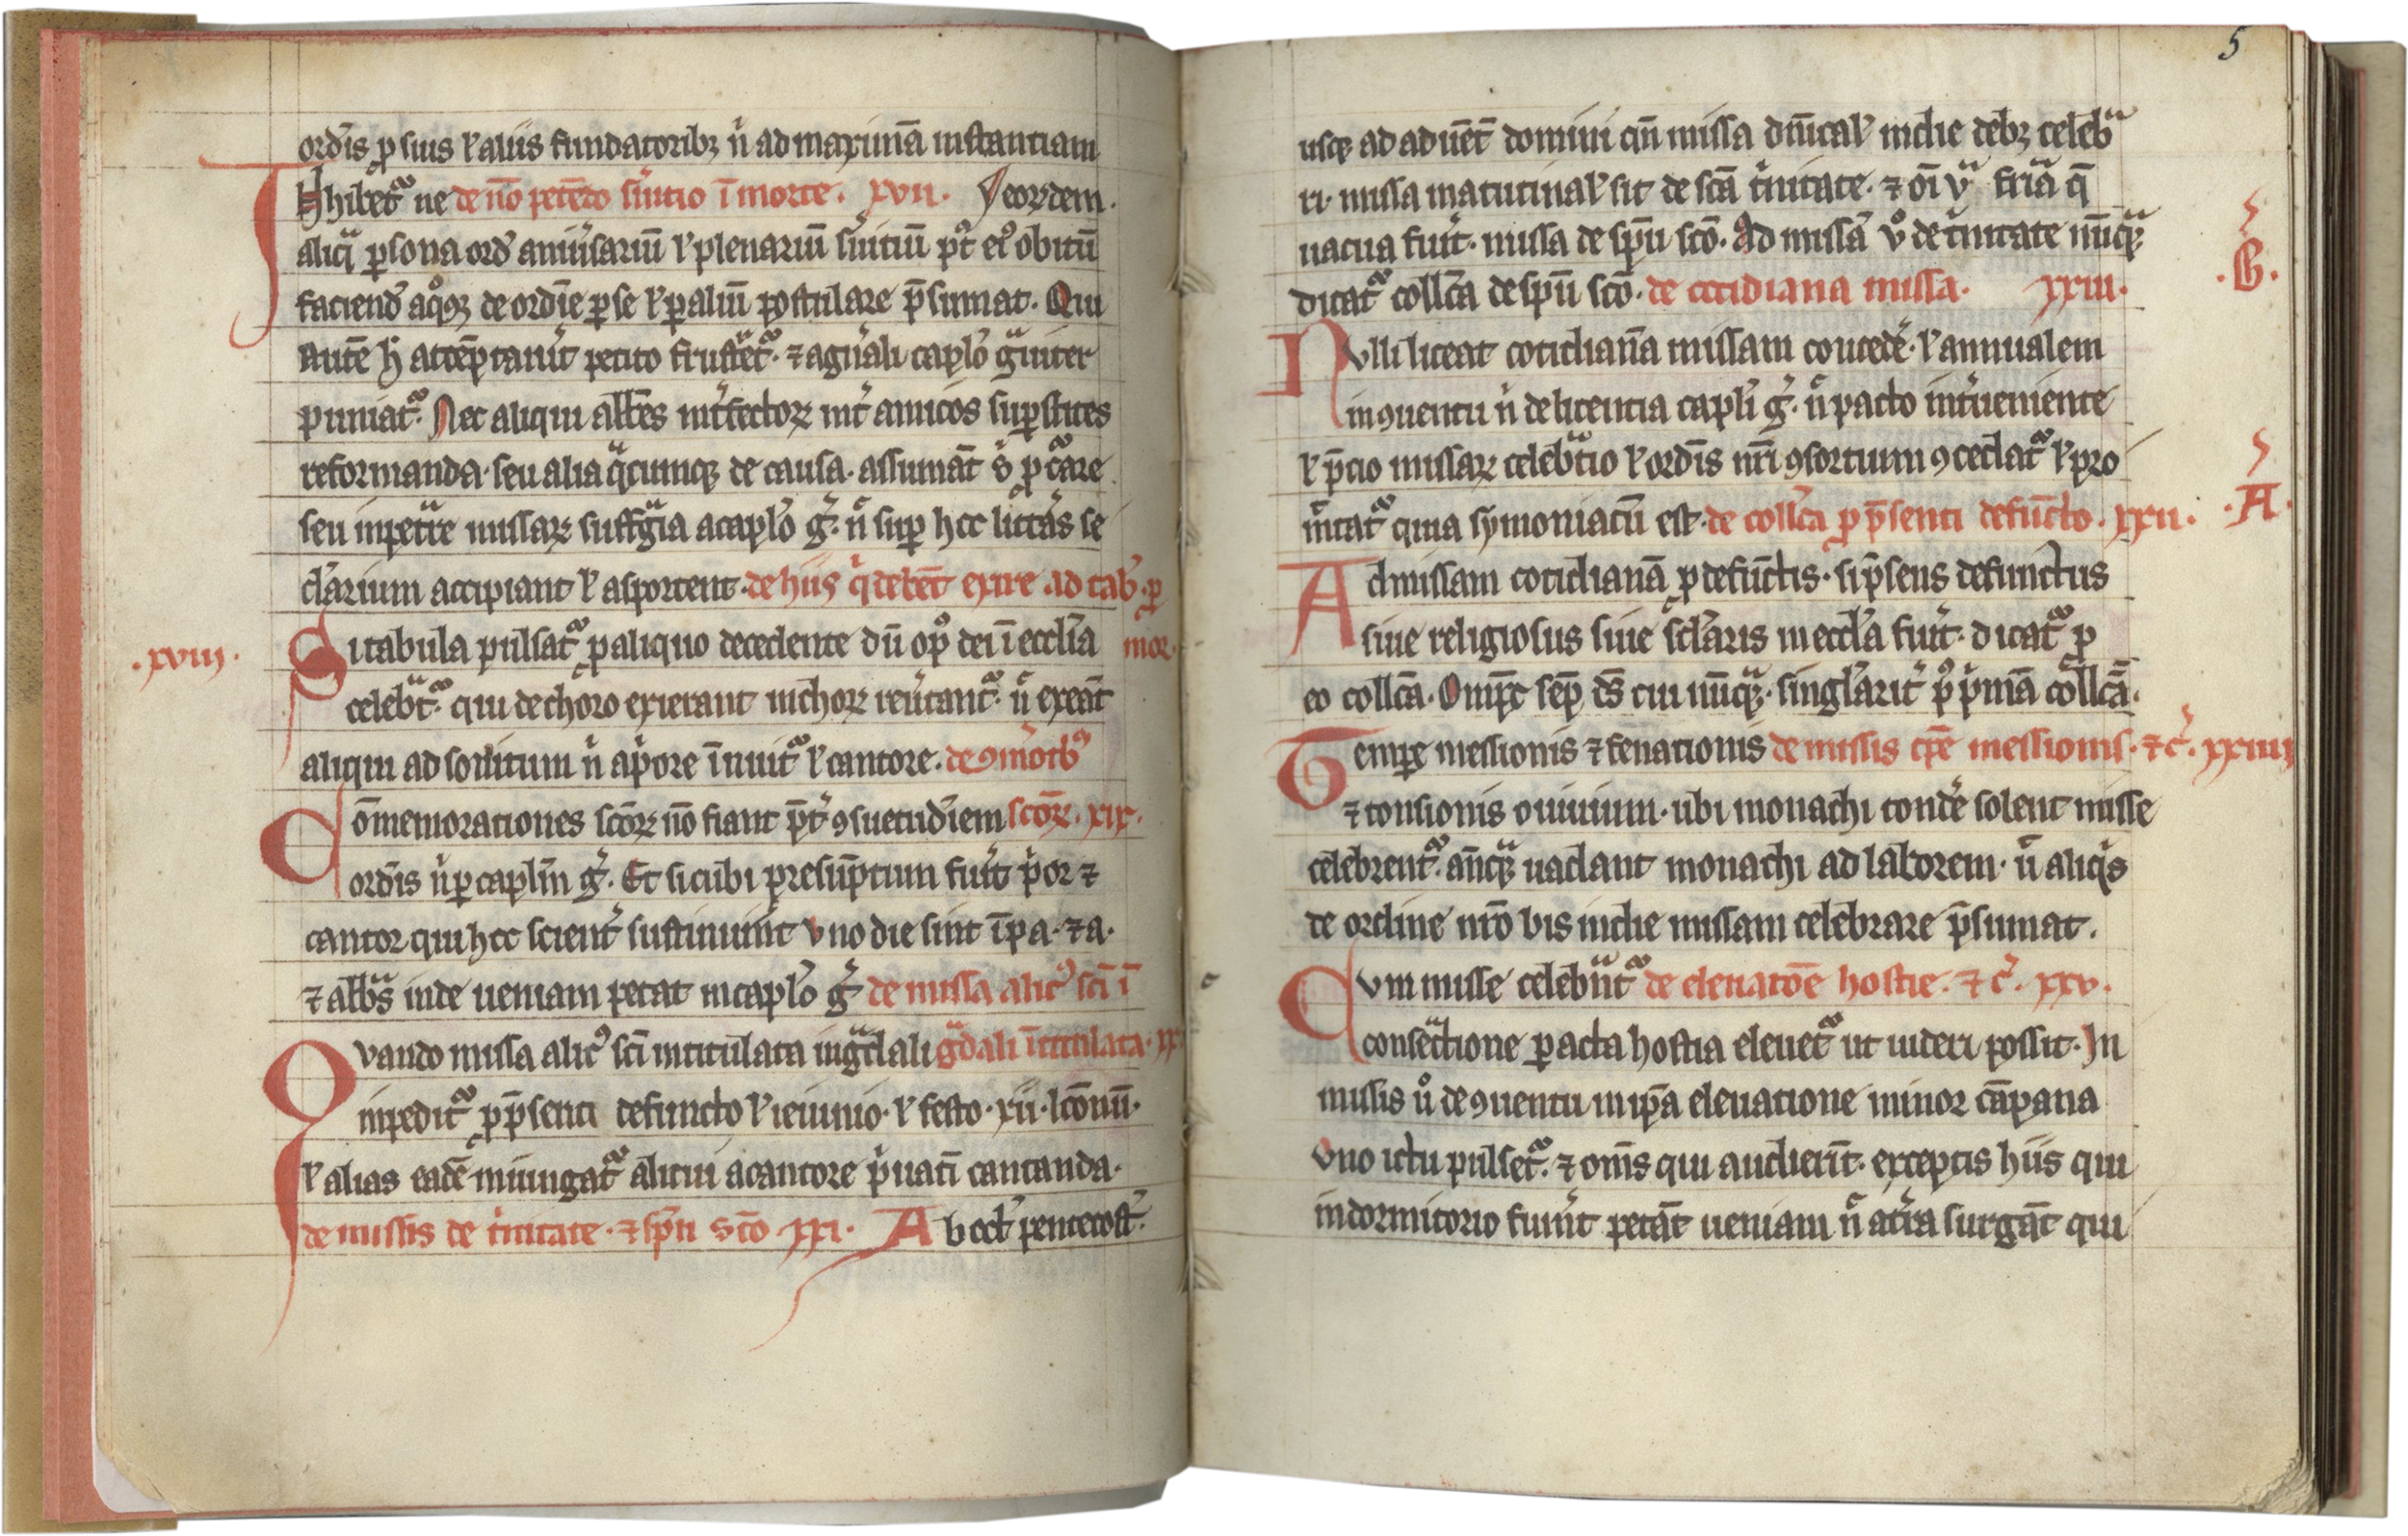 ordīs ꝓ suis ɫ aliis fundatoribꝫ n̄ ad maximā instantiam
Inhibet᷑ ne de nō petēdo s̓uitio ī morte. xvii. deordem.
aliq̄ ꝑsona ord̄ anniu̓sariū ɫ plenariū s̓uitiū pꝰ eiꝰ obitū
faciend̄ a qͦqꝫ de ordīe ꝑ se ɫ ꝑ aliū postulare p̄sumat. Qui
autē h̄ acceptauīt petito frustret᷑. ⁊ a gn̄ali caplo g̃uiter
puniat᷑. Nec aliqui abbēs int̓fectoꝝ int̓ amicos suꝑstites
reformanda. seu alia q̃cumqꝫ de causa. assumāt
seu inpet̃re missaꝝ suffg̃ia a caplo g̓. n̄ suꝑ hoc litt̓as se
cl̓arium accipiant ɫ asportent. de hiis q̓ debēt exire ad tab̓. ꝓ
.xviii. Si tabula pulsat᷑ ꝓ aliquo decedente dū opꝰ dei ī ecclīa mor.
celebt̃᷑. qui de choro exierant in choꝝ reu̓tant᷑. n̄ exeāt
aliqui ad solitum n̄ a p̓ore īnuit᷑ ɫ cantore. de ꝯmōtbꝰ
Cōmemorationes sc̄oꝝ nō fiant p̄t̓ ꝯsuetudīem sc̄oꝝ. xix.
ordīs n̄ ꝑ caplm̄ g̓. Et sicubi presūptum fu̓it p̓or ⁊
cantor qui hoc scient̓ sustinuīnt vno die sint ī pa. ⁊ a.
⁊ abb̃s inde ueniam petat in caplo g̓ de missa alicꝰ sc̄i ī
Qvando missa alicꝰ sc̄i intitulata in g̃dali g̃dali ītitulata. xx
inpedit᷑ ꝓ p̄senti defuncto ɫ ieiunio. ɫ festo. xii. lc̄onū.
ɫ alias eadē iniungat᷑ alicui a cantore p̓uatī cantanda.
de missis de t̓nitate. ⁊ sp̄u sc̄o xxi. Ab oct̓ pentecost̓.
5
usqꝫ ad aduēt̄ domini cū missa dn̄ical̓ in die debꝫ celeb̃
ri. missa matutinal̓ sit de sc̄a t̓nitate. ⁊ oī vi̓ fr̄ia q̄
uacua fu̓it. missa de sp̄u sc̄o. Ad missā v̊ de t̓nitate nūq̃ꝫ
dicat᷑ coll̄ca de sp̄u sc̄o. de cotidiana missa. xxiii. .B.
Nvlli liceat cotidianā missam concede̓. ɫ annualem
in ꝯuentu n̄ de licentia capli g̓. n̄ pacto int̓ueniente
ɫ p̄cio missaꝝ celeb̃tio ɫ ordīs nr̄i ꝯsortium ꝯcedat᷑ ɫ pro
mitat᷑ quia symoniacū est. de coll̄ca ꝓ p̄senti defūcto. xxii. .A.
Ad missam cotidianā ꝓ defūctis. si p̄sens defunctus
siue religiosus siue sc̓laris in eccl̄a fu̓it. dicat᷑ ꝓ
eo coll̄ca. Omp̄c sēp d̄s cui nūq̃ꝫ. singl̓arit̓ pꝰ p̓mā coll̄cā.
Tempe messionis ⁊ fenationis de missis tp̄e messionis. ⁊ c̓. xxiiii
⁊ tonsionis ouiuium. ubi monachi tonde̓ solent misse
celebrent᷑. anq̃ꝫ uadant monachi ad laborem. n̄ aliq̓s
de ordine nr̄o bis in die missam celebrare p̄sumat.
Cvm misse celebn̄t᷑ de eleuatōe hostie. ⁊ c̓. xxv.
consec̃tione ꝑacta hostia eleuet᷑ ut uideri possit. In
missis v̊ de ꝯuentu in ip̄a eleuatione minor cāpana
vno ictu pulset᷑. ⁊ om̄s qui audierīt. exceptis hiis qui
in dormitorio fuīnt petāt ueniam n̄ a t̓ra surgāt qui